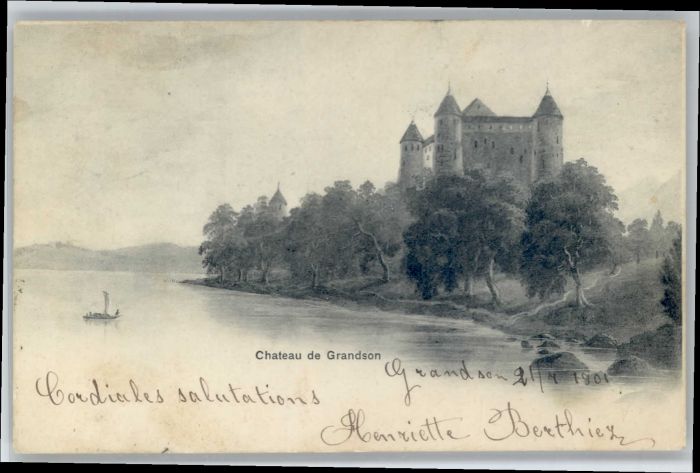 Chateau de Grandson
Grandson 21/4 1901
Cordiales salutations
Henriette Berthiez